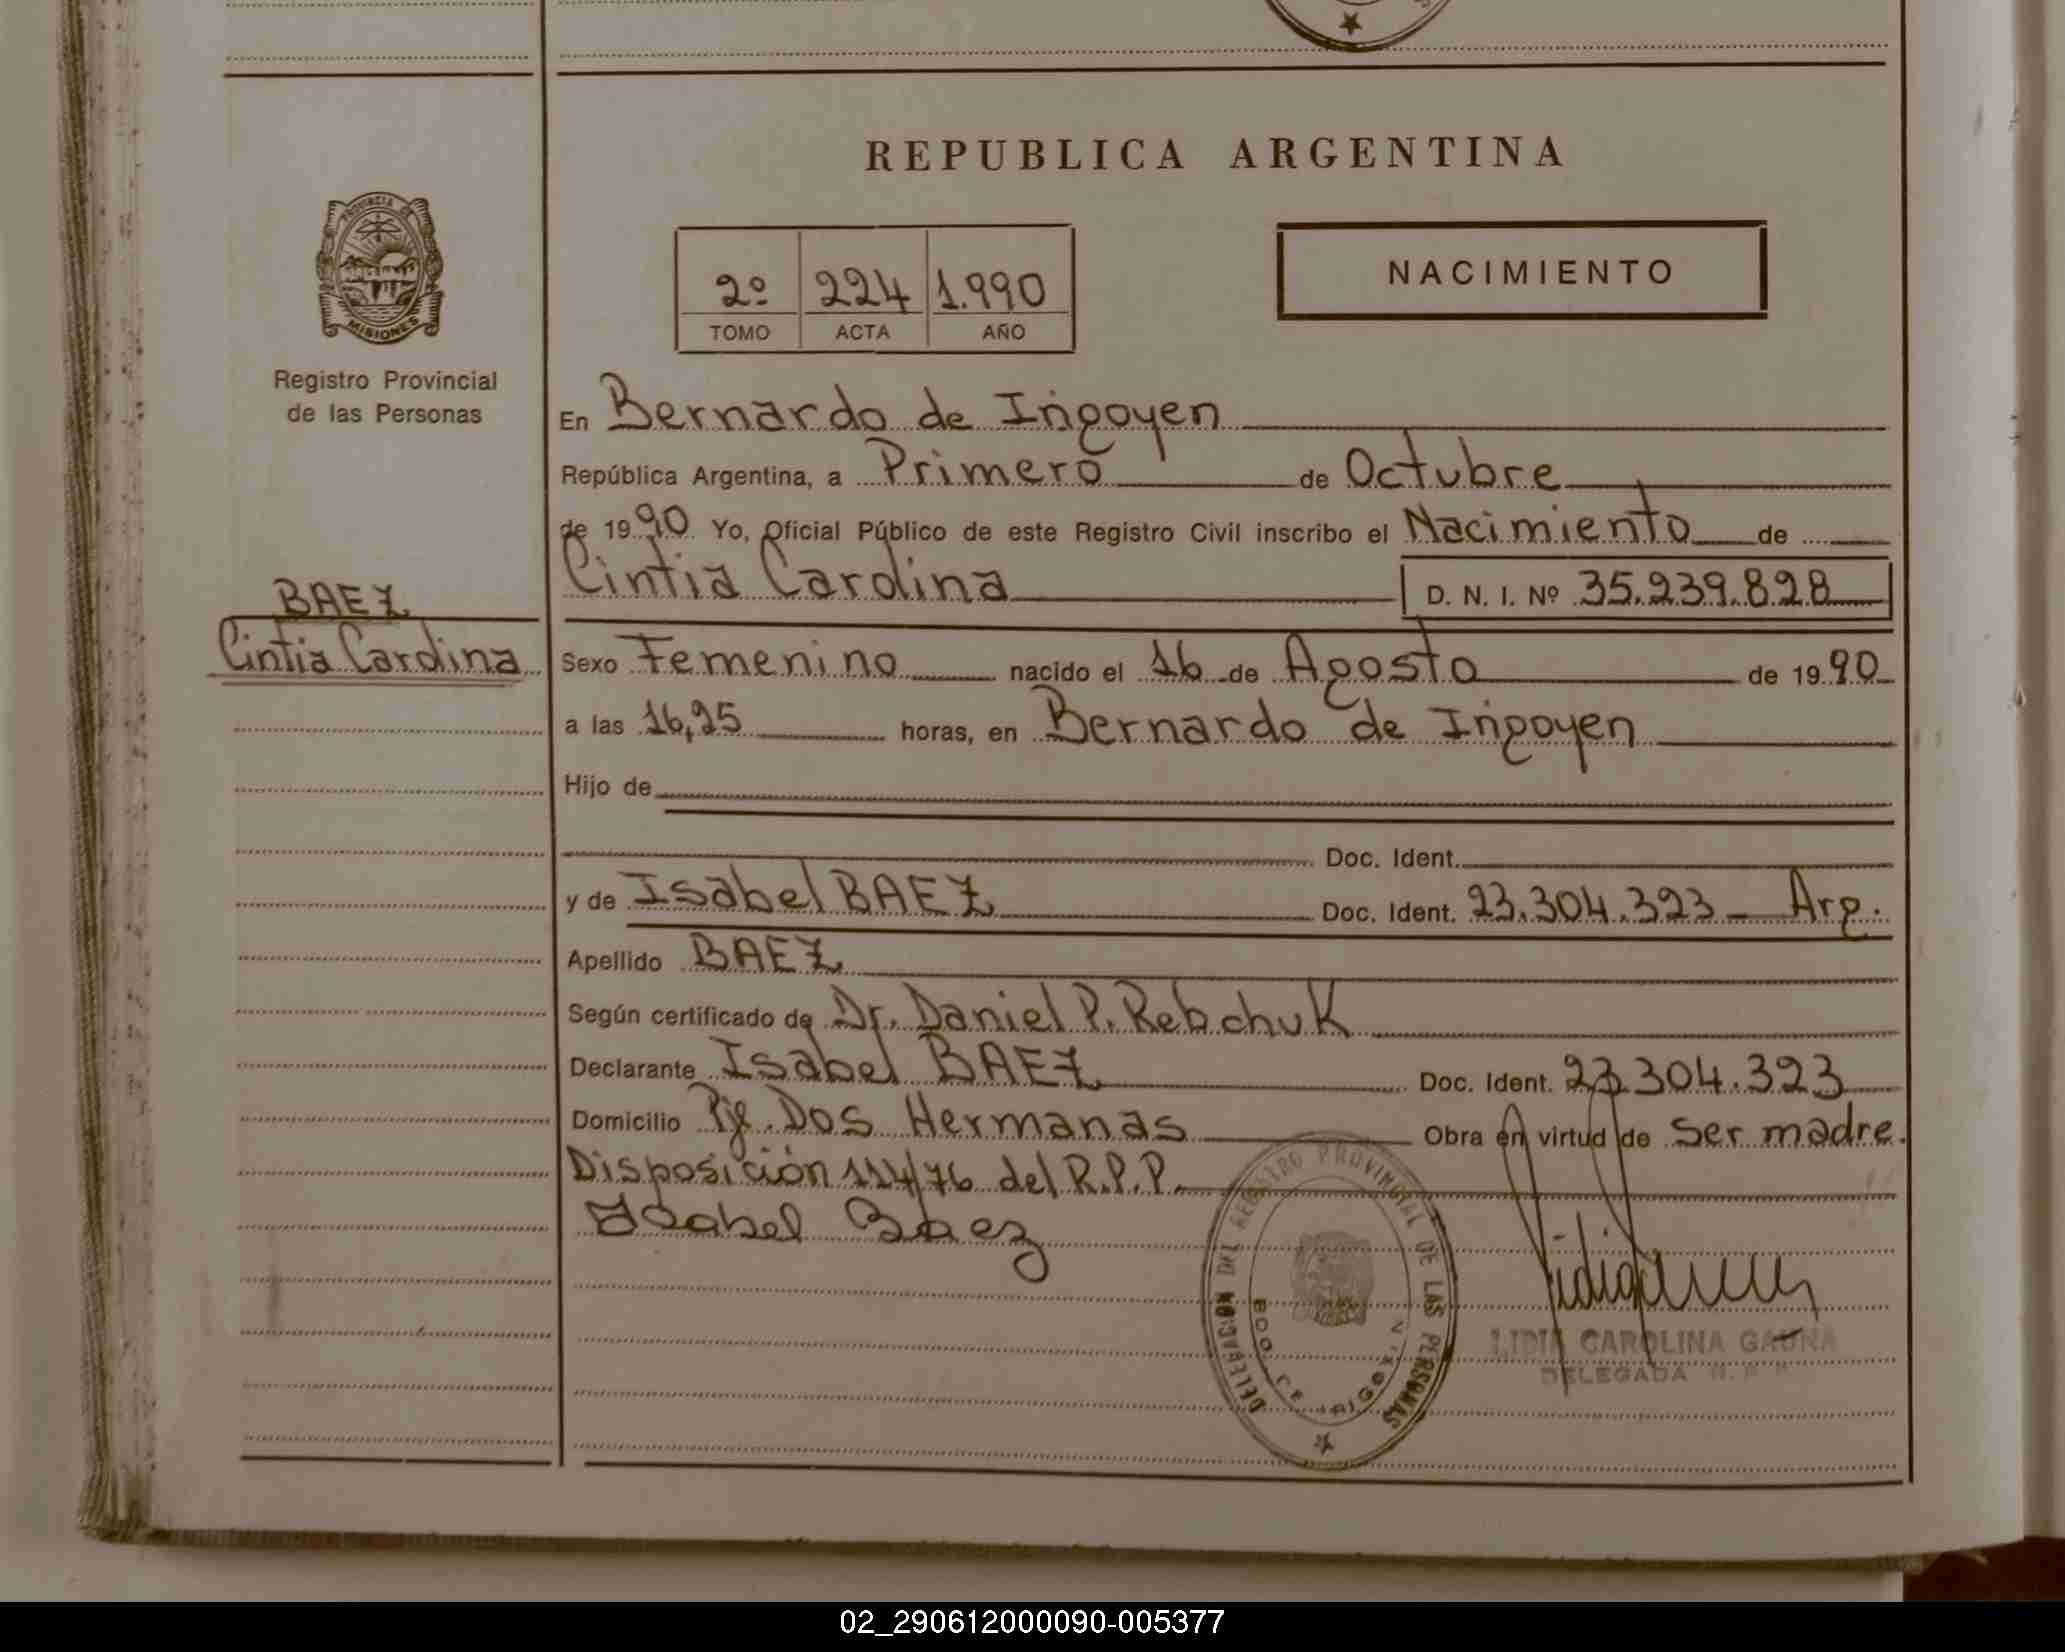 REPUBLICA ARGENTINA
PROVINCIA DE
MISIONES
Registro Provincial
de las Personas
2º 224 1.990
TOMO ACTA AÑO
NACIMIENTO
En Bernardo de Irigoyen
República Argentina, a Primero de Octubre
de 1990 Yo, Oficial Público de este Registro Civil inscribo el Nacimiento de
Cintia Carolina D. N. I. Nº 35.239.828
BAEZ
Cintia Carolina
Sexo Femenino nacido el 16 de Agosto de 1990
a las 16,25 horas, en Bernardo de Irigoyen
Hijo de
Doc. Ident.
y de Isabel BAEZ Doc. Ident. 23.304.323 - Arg.
Apellido BAEZ
Según certificado de Dr. Daniel P. Rebchuk
Declarante Isabel BAEZ Doc. Ident. 23.304.323
Domicilio Pje. Dos Hermanas Obra en virtud de ser madre.
Disposición 114/76 del R.P.P.
Isabel Baez
DELEGACION DEL REGISTRO PROVINCIAL DE LAS PERSONAS
BDO. DE IRIGOYEN
LIDIA CAROLINA GAUNA
DELEGADA
02_290612000090-005377